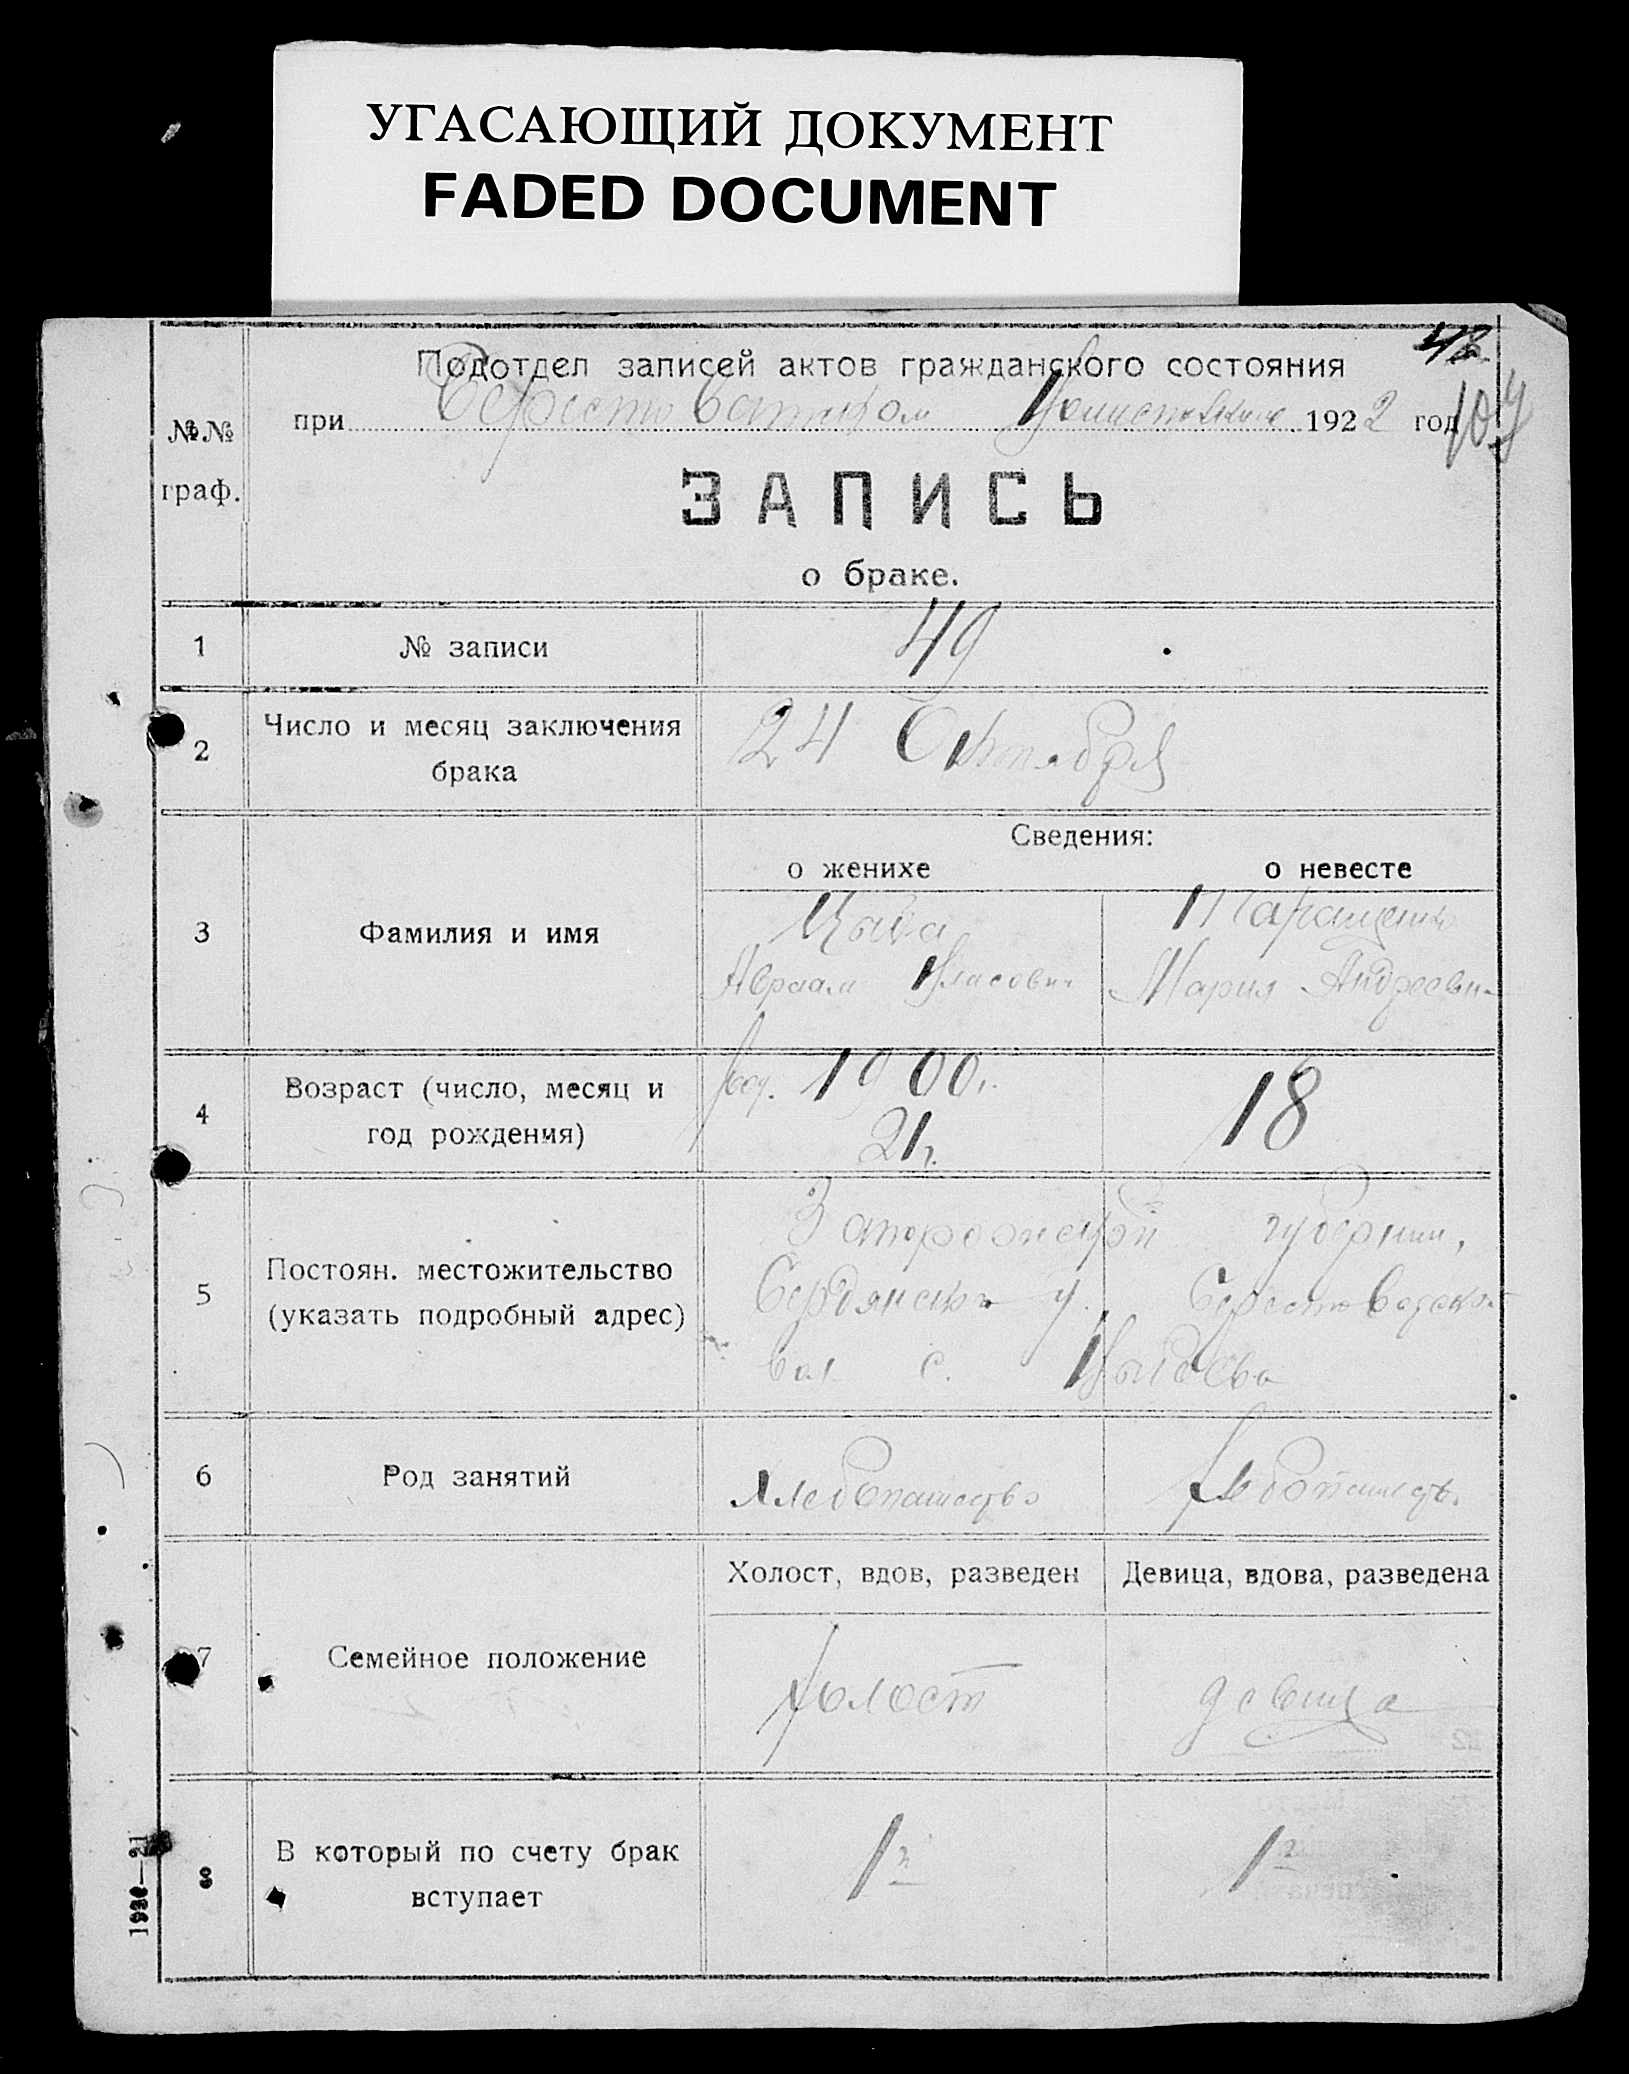 УГАСАЮЩИЙ ДОКУМЕНТ
FADED DOCUMENT
Подотдел записей актов гражданского состояния
при 1922 год
№№
граф.
ЗАПИСЬ
о браке.
1 № записи 49
2 Число и месяц заключения
брака
24 Октября
Сведения:
о женихе о невесте
3 Фамилия и имя
Цыба
Авраам Власович Мария Андреевн
4 Возраст (число, месяц и
год рождения)
1900
21 г. 18
5 Постоян. местожительство
(указать подробный адрес)
Запорожской губернии,
Бердянск у.
вол с.
6 Род занятий
Хлебопашество
Холост, вдов, разведен Девица, вдова, разведена
7 Семейное положение
холост девица
8 В который по счету брак
вступает
1й 1й